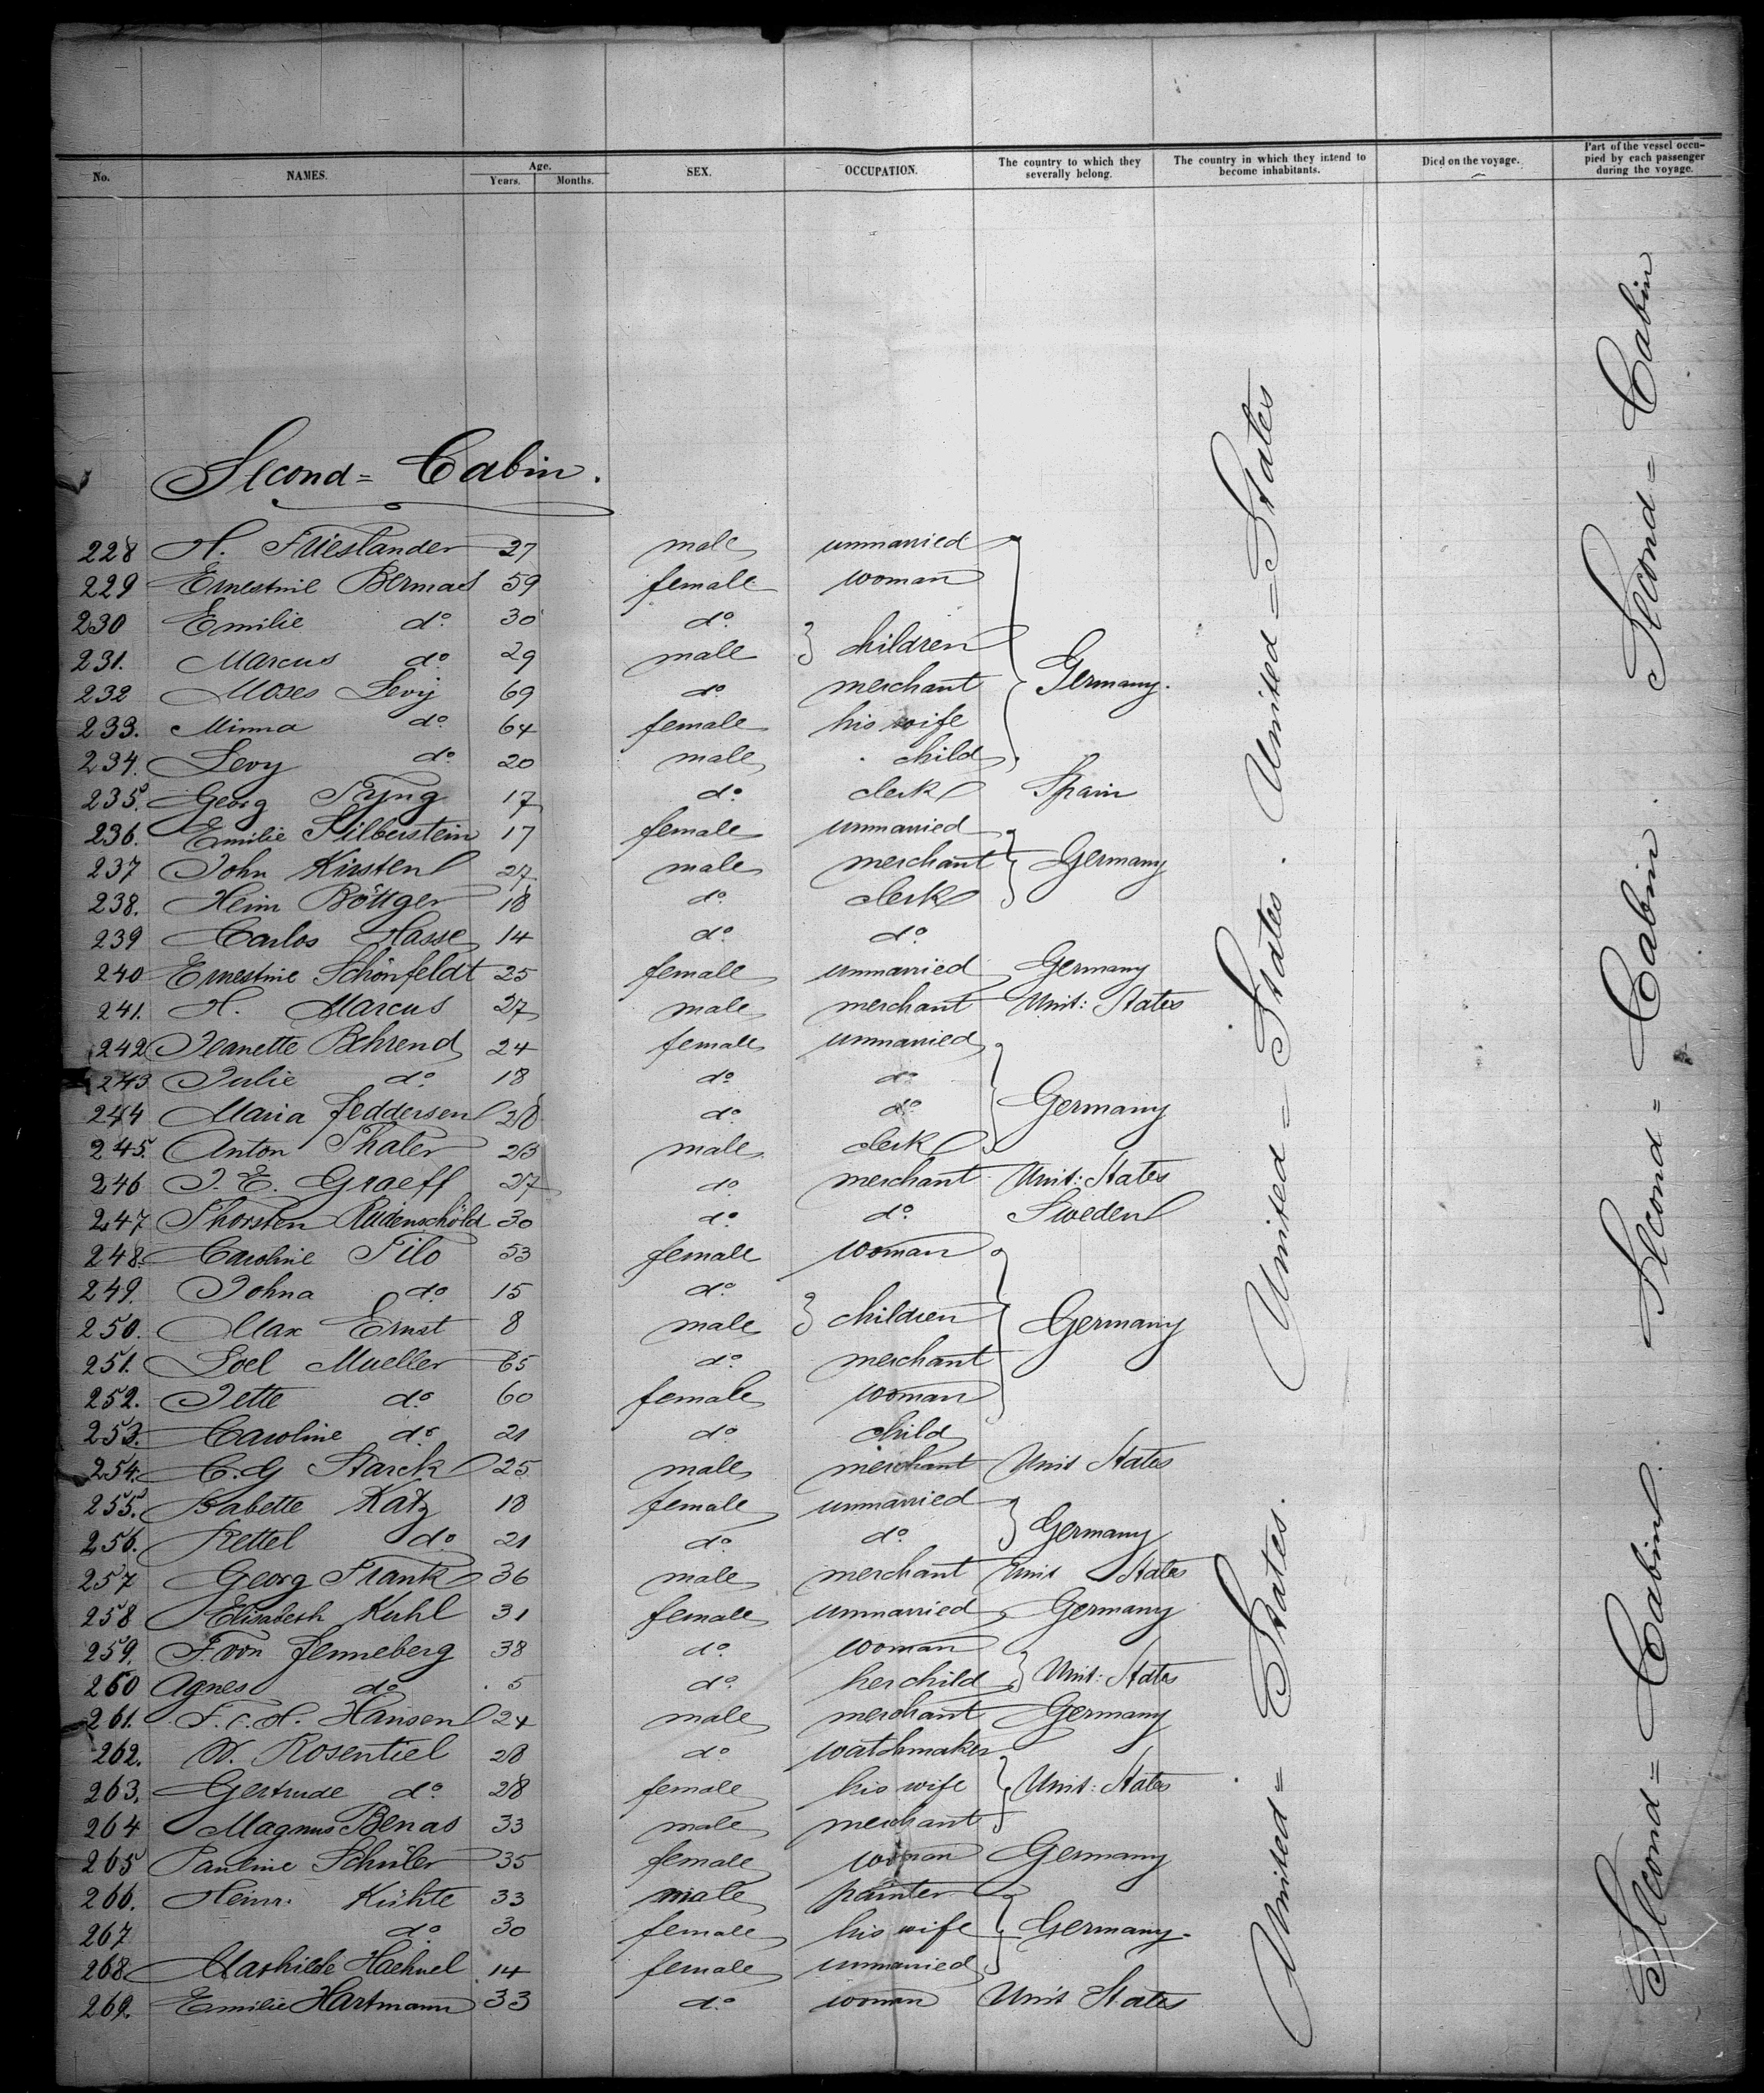 No. NAMES. Age. Years. Months. SEX. OCCUPATION. The country to which they severally belong. The country in which they intend to become inhabitants. Died on the voyage. Part of the vessel occupied by each passenger during the voyage.
Second = Cabin.
228 H. Frieslander 27 male unmarried
229 Ernestine 59 female woman
230 Emilie do. 30 do.
231. Marcus do. 29 male } children
232 Moses Levy 69 do. merchant Germany.
233. Minna do. 64 female his wife
234. Levy do. 20 male child
235. Georg 17 do. clerk Spain
236. Emilie Silberstein 17 female unmarried
237 John Kirsten 27 male merchant Germany
238. Heinr Böttger 18 do. clerk
239 Carlos Hasse 14 do. do.
240 Ernestine Schönfeldt 25 female unmarried Germany
241. H. Marcus 27 male merchant Unit: States
242 Jeanette Behrend 24 female unmarried
243 Julie do. 18 do. do.
244 Maria Feddersen 28 do. do. Germany
245. Anton Thaler male clerk
246 J. E. Graeff 27 do. merchant Unit: States
247 Thorsten Rudenschöld 30 do. do. Sweden
248. Caroline Tilo 53 female woman
249. Johna do. 15 do.
250. Max Ernst 8 male } children Germany
251. Joel Mueller 65 do. merchant
252. Jette do. 60 female woman
253. Caroline do. 21 do. child
254. C. G Starck 25 male merchant Unit States
255. Babette Katz 18 female unmarried
256. Rettel do. 21 do. do. Germany
257 Georg Frank 36 male merchant Unit States
258 Elisabeth Kuhl 31 female unmarried Germany
259. F. von Fenneberg 38 do. woman
260 Agnes do. 5 do. her child Unit: States
261. F. C. H. Hansen 24 male merchant Germany
262. W. Rosentiel 28 do. watchmaker
263. Gertrude do. 28 female his wife Unit: States
264 Magnus Benas 33 male merchant
265 Pauline Schüler 35 female woman Germany
266. Heinr. Kühte 33 male painter
267 do. 30 female his wife Germany.
268 Mathilde Haehnel 14 female unmarried
269. Emilie Hartmann 33 do. woman Unit States
United = States. United = States. United = States
Second = Cabin. Second = Cabin. Second = Cabin